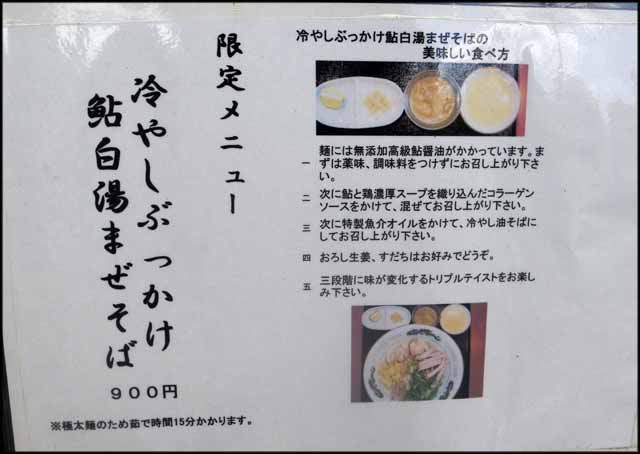 限定メニュー
冷やしぶっかけ
鮎白湯まぜそば
900円
※極太麺のため茹で時間15分かかります。
冷やしぶっかけ鮎白湯まぜそばの
美味しい食べ方
一 麺には無添加高級鮎醤油がかかっています。ま
ずは薬味、調味料をつけずにお召し上がり下さ
い。
二 次に鮎と鶏濃厚スープを織り込んだコラーゲン
ソースをかけて、混ぜてお召し上がり下さい。
三 次に特製魚介オイルをかけて、冷やし油そばに
してお召し上がり下さい。
四 おろし生姜、すだちはお好みでどうぞ。
五 三段階に味が変化するトリプルテイストをお楽し
み下さい。